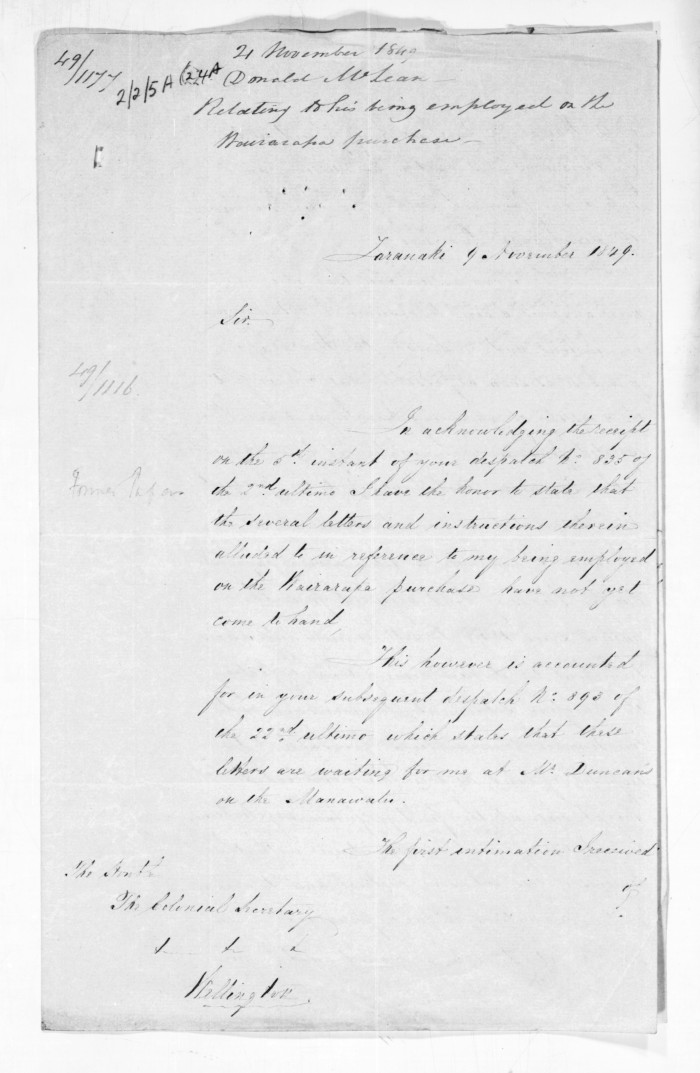 49/1177
2/2/5A (24A
21 November 1849
Donald McLean
Relating to his being employed on the
Wairarapa purchase
Taranaki 9 November 1849.
Sir
49/1116
Former Papers
In acknowledging the receipt
on the 5th instant of your despatch No. 835 of
the 2nd ultimo I have the honor to state that
the several letters and instructions therein
alluded to in reference to my being employed
on the Wairarapa purchase have not yet
come to hand,
This however is accounted
for in your subsequent despatch No. 893 of
the 22nd ultimo which states that these
letters are waiting for me at Mr. Duncan's
on the Manawatu.
The first intimation I received
of
The Honble
The Colonial Secretary
Wellington